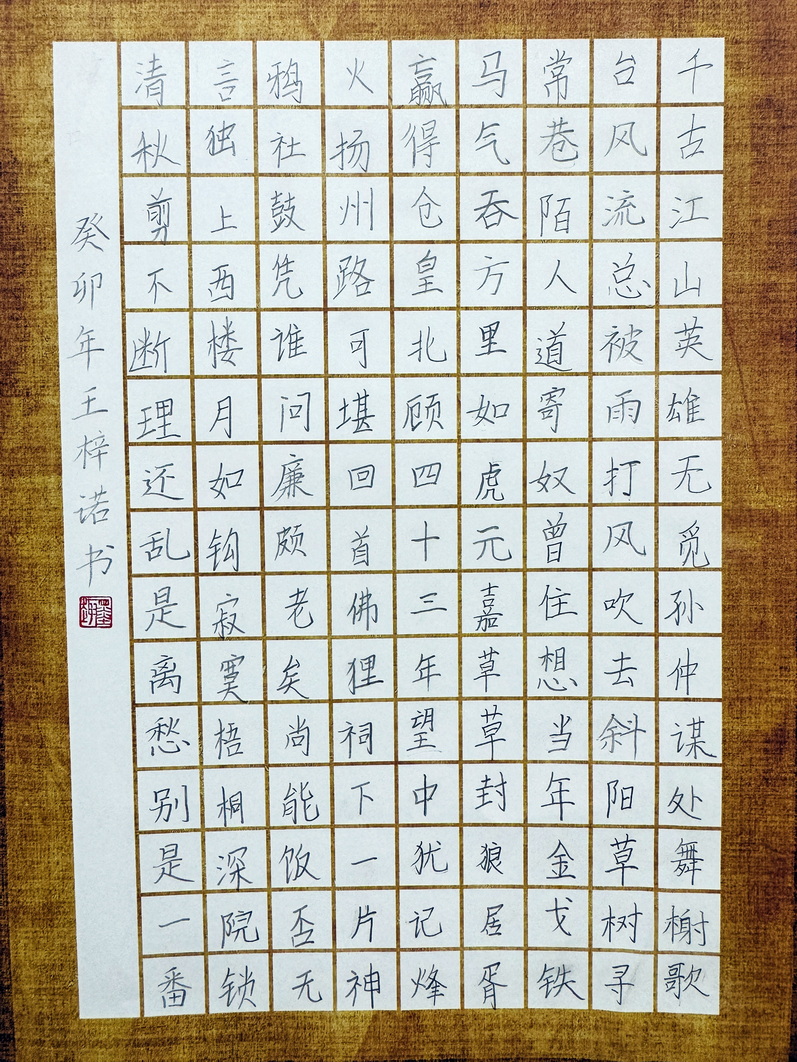 千古江山英雄无觅孙仲谋处舞榭歌
台风流总被雨打风吹去斜阳草树寻
常巷陌人道寄奴曾住想当年金戈铁
马气吞方里如虎元嘉草草封狼居胥
赢得仓皇北顾四十三年望中犹记烽
火扬州路可堪回首佛狸祠下一片神
鸦社鼓凭谁问廉颇老矣尚能饭否无
言独上西楼月如钩寂寞梧桐深院锁
清秋剪不断理还乱是离愁别是一番
癸卯年王梓诺书